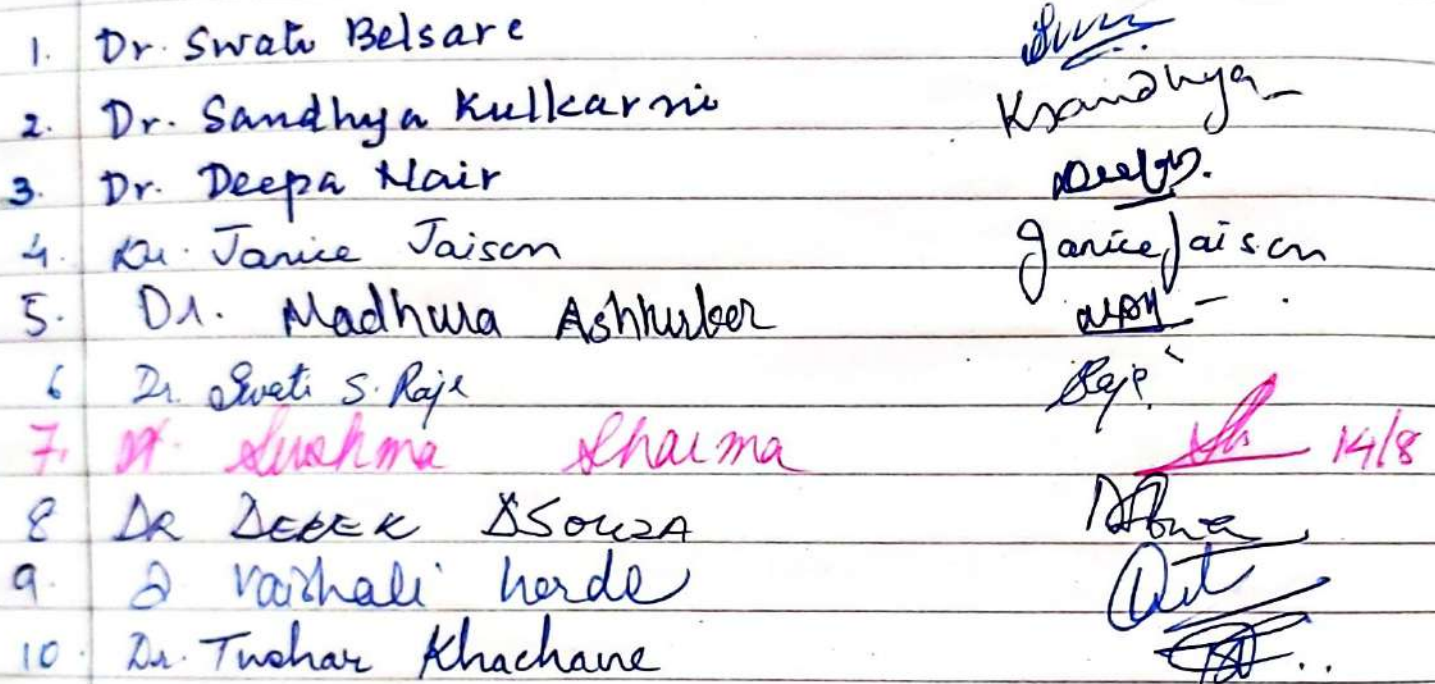 1. Dr. Swati Belsare
2. Dr. Sandhya Kulkarni Ksandhya
3. Dr. Deepa Nair Deepa.
4. Dr. Janice Jaison Janice Jaison
5. Dr. Madhura
6 Dr. Swati S. Raje Raje
7. Dr. Sushma Sharma 14/8
8 DR DEREK DSOUZA
9. Vaishali
10. Dr. Tushar Khachane